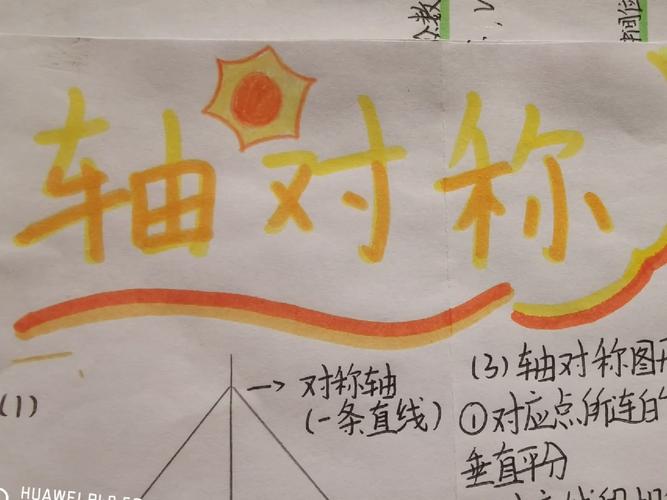 轴对称
(1)
→ 对称轴
(一条直线)
(3) 轴对称图
① 对应点所连
垂直平分
HUAWEI